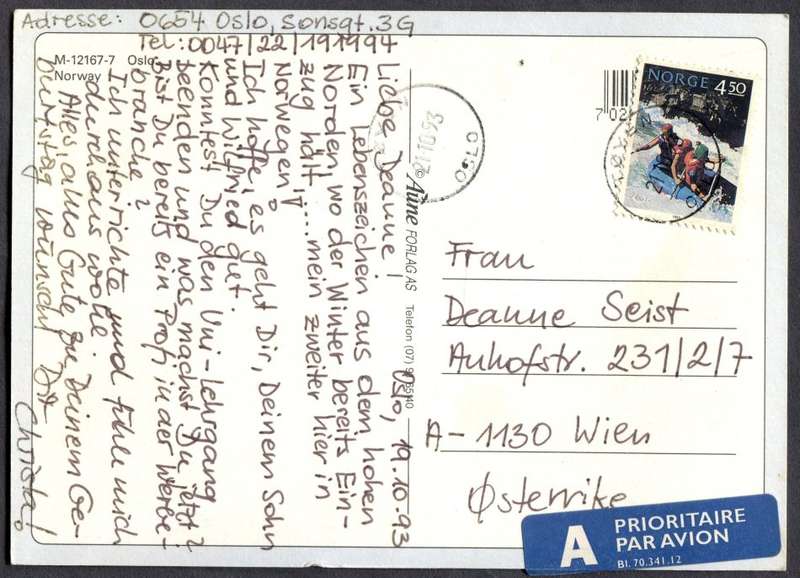 Adresse: 0654 Oslo, Sonsgt. 3G
Tel: 0047/22/191994
M-12167-7 Oslo
Norway
Oslo, 19.10.93
Liebe Deanne!
Ein Lebenszeichen aus dem hohen
Norden, wo der Winter bereits Ein-
zug hält, .... mein zweiter hier in
Norwegen!
Ich hoffe, es geht Dir, Deinem Sohn
und Wilfried gut.
Konntest Du den Uni-Lehrgang
beenden und was machst Du jetzt?
Bist Du bereits ein Profi in der Werbe-
branche?
Ich unterrichte und fühle mich
durchaus wohl.
Alles, alles Gute zu Deinem Ge-
burtstag wünscht Dir
Christa!
© Aune FORLAG AS Telefon (07)
NORGE 4.50
7 02
Frau
Deanne Seist
Auhofstr. 231/2/7
A-1130 Wien
Østerrike
A PRIORITAIRE
PAR AVION
Bl. 70.341.12